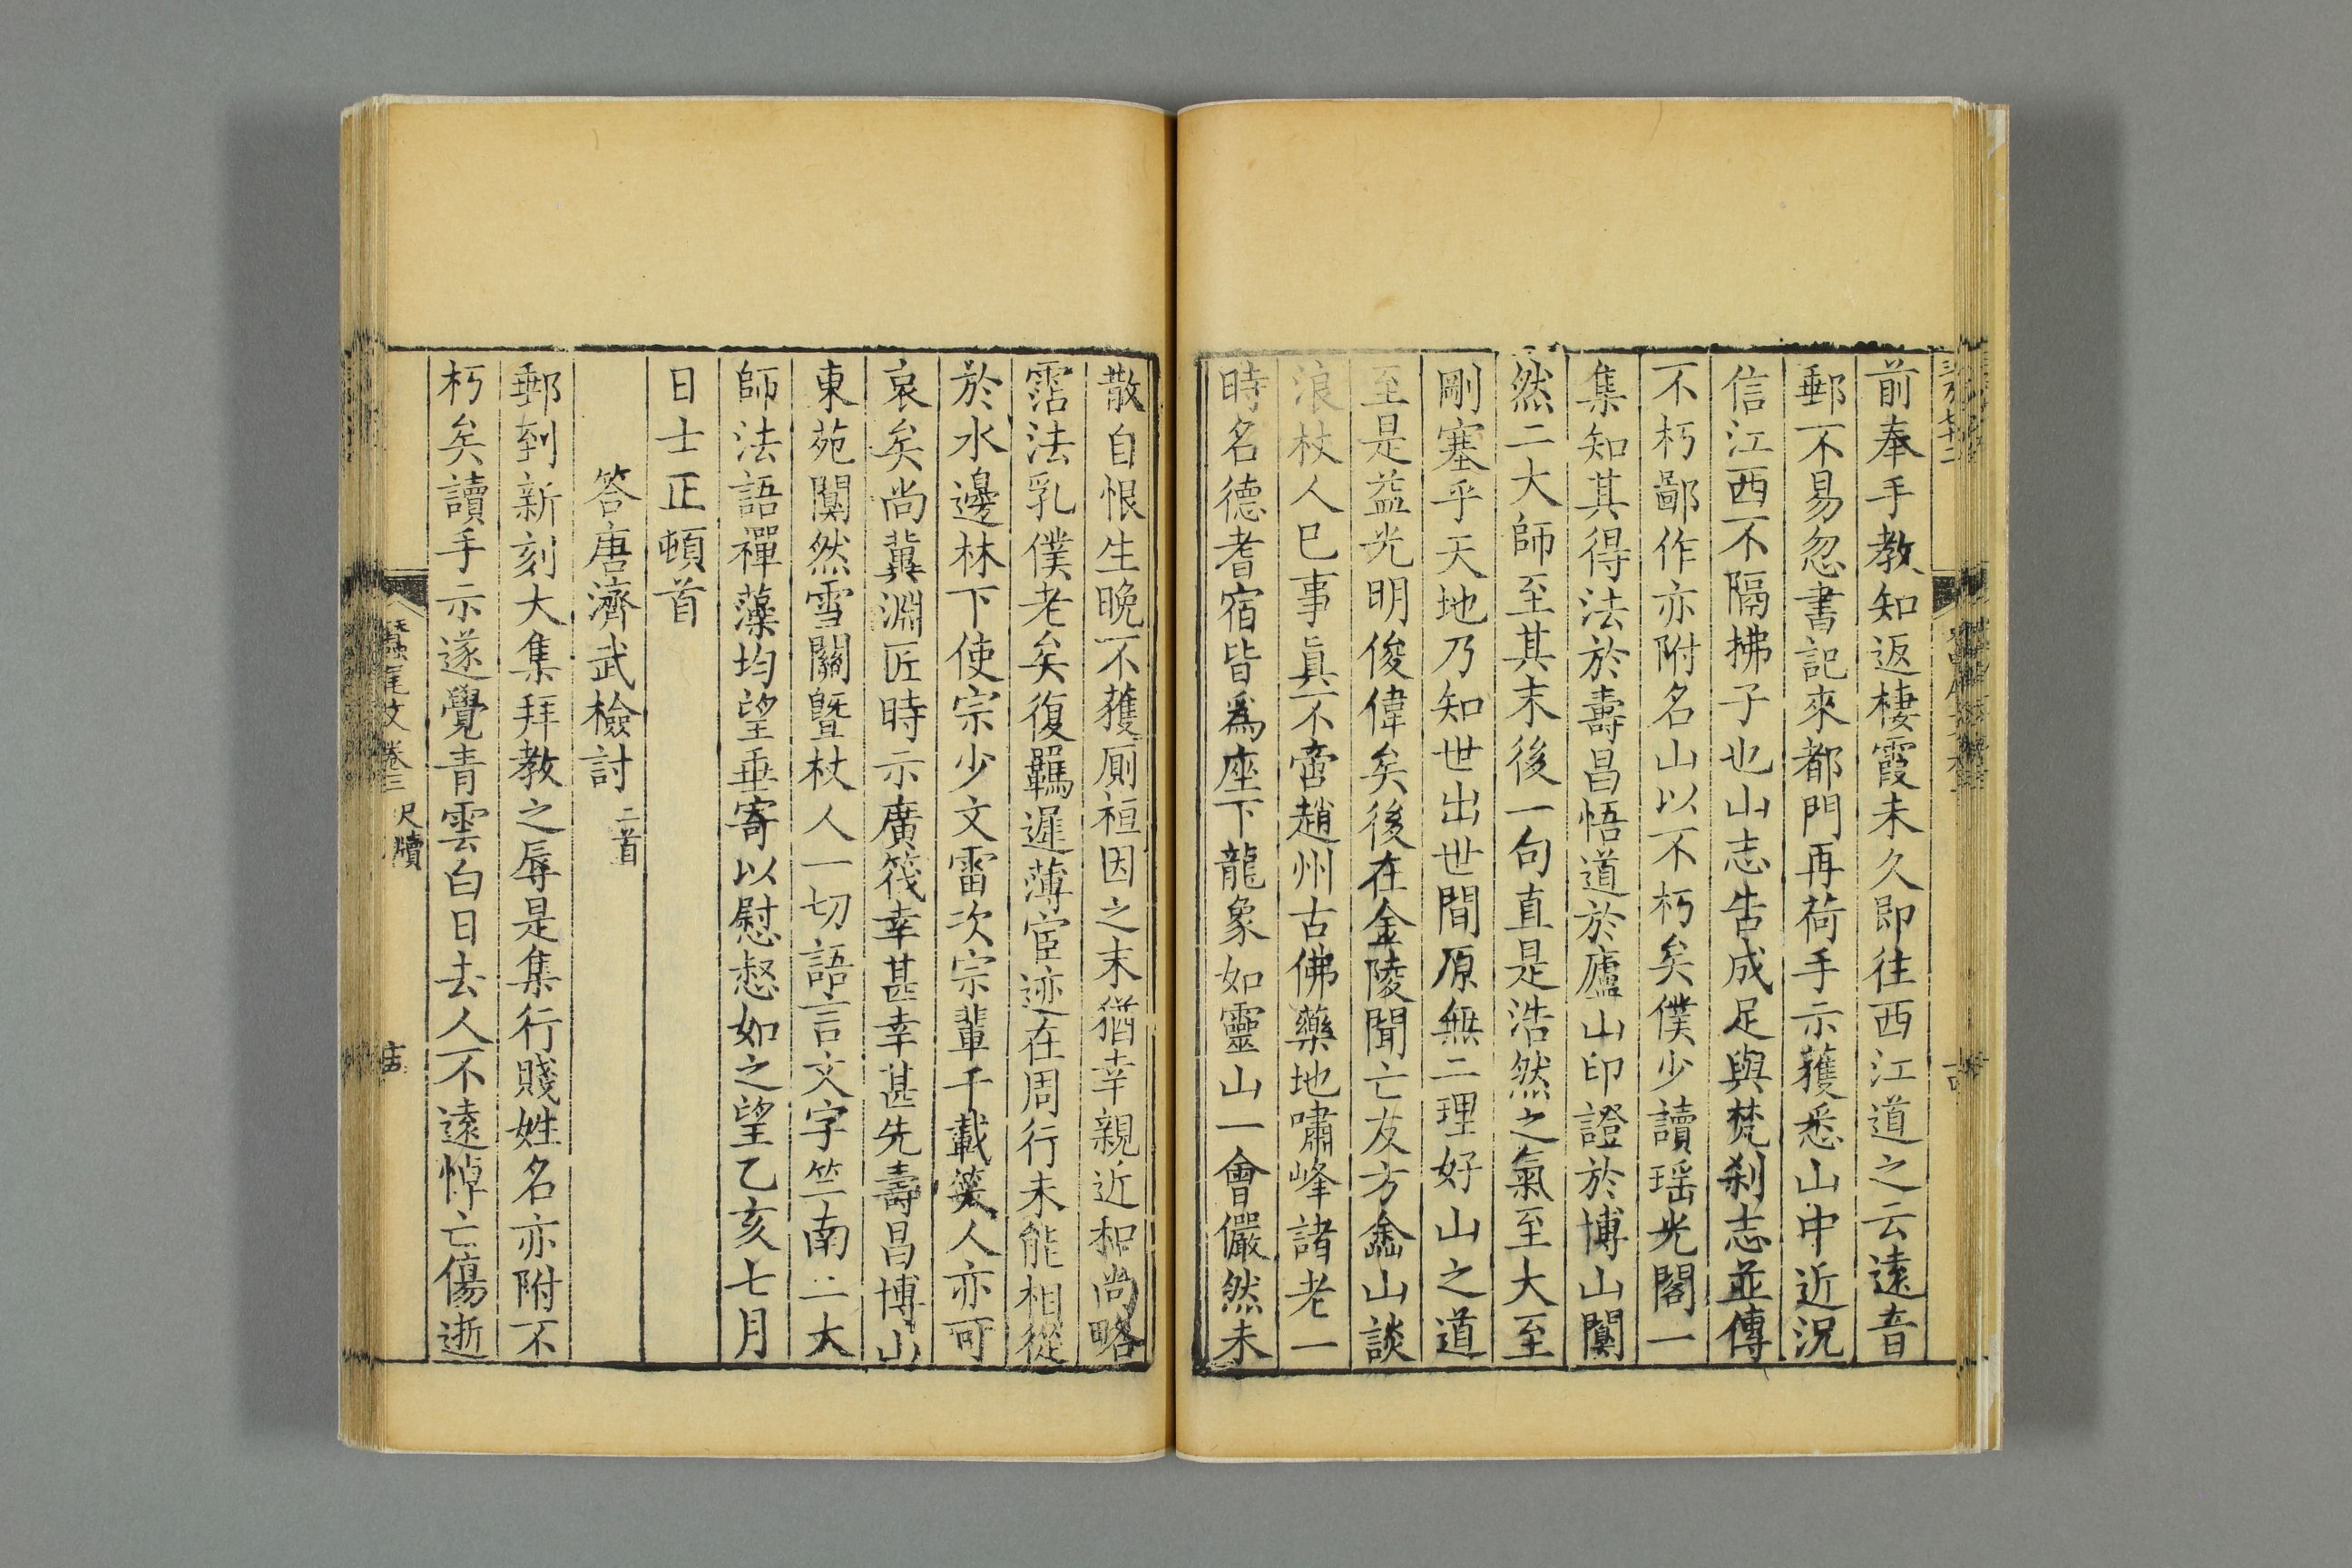 前奉手教知返棲霞未久即往西江道之云遠音
郵不易忽書記來都門再荷手示獲悉山中近況
信江西不隔拂子也山志告成足與梵刹志並傳
不朽鄙作亦附名山以不朽矣僕少讀瑶光閣一
集知其得法於壽昌悟道於廬山印證於博山闃
然二大師至其末後一句直是浩然之氣至大至
剛塞乎天地乃知世出世間原無二理好山之道
至是益光明俊偉矣後在金陵聞亡友方盦山談
浪杖人巳事眞不啻趙州古佛藥地嘯峰諸老一
時名德耆宿皆爲座下龍象如靈山一會儼然未
散自恨生晚不獲厠桓因之末猶幸親近和尚略
霑法乳僕老矣復羈遲薄宦迹在周行未能相從
於水邊林下使宗少文雷次宗輩千載笑人亦可
哀矣尚冀淵匠時示廣筏幸甚幸甚先壽昌博山
東苑闃然雪關曁杖人一切語言文字竺南二大
師法語禪藻均望垂寄以慰惄如之望乙亥七月
日士正頓首
答唐濟武檢討二首
郵到新刻大集拜教之辱是集行賤姓名亦附不
朽矣讀手示遂覺青雲白日去人不遠悼亡傷逝
蠶尾文卷三 尺牘